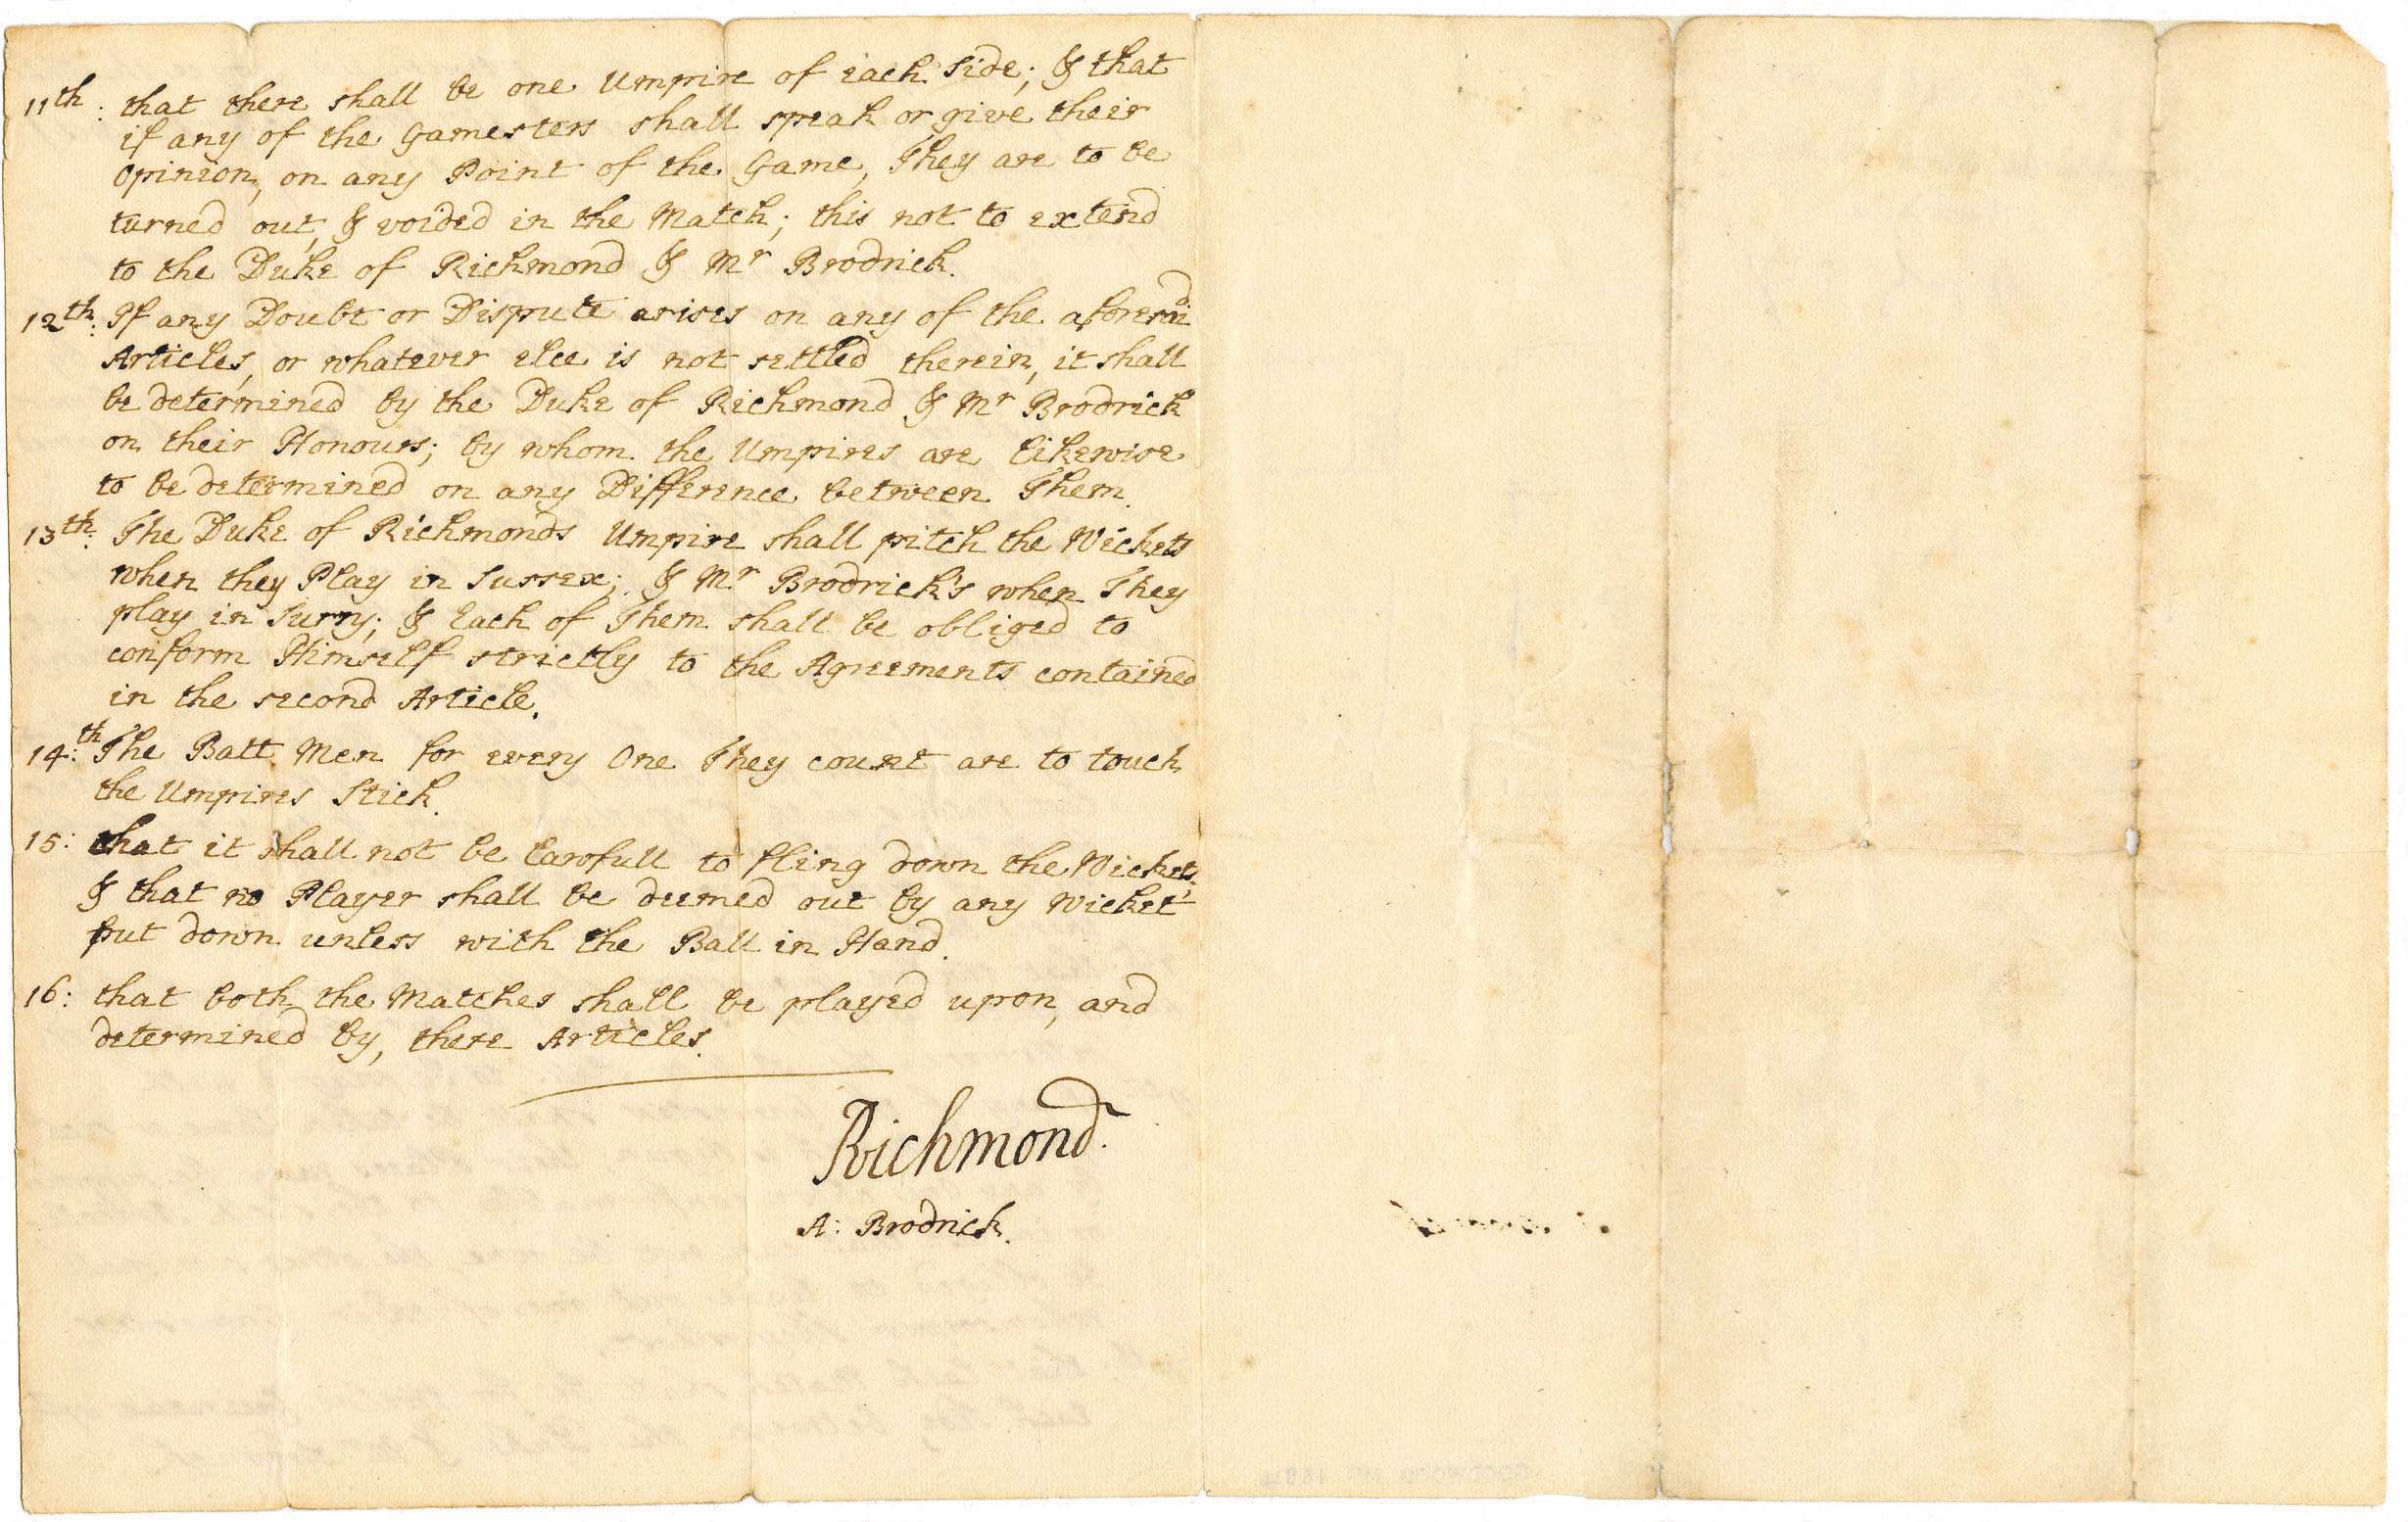 11th: that there shall be one Umpire of each Side; & that
if any of the Gamesters shall speak or give their
Opinion, on any Point of the Game, They are to be
turned out, & voided in the Match; this not to extend
to the Duke of Richmond & Mr Brodrick.
12th: If any Doubt or Dispute arises on any of the aforesaid
Articles, or whatever else is not settled therein, it shall
be determined by the Duke of Richmond & Mr Brodrick
on their Honours; by whom the Umpires are likewise
to be determined on any Difference between Them.
13th: The Duke of Richmonds Umpire shall pitch the Wickets
when they Play in Sussex; & Mr Brodrick's when They
play in Surry; & Each of Them shall be obliged to
conform Himself strictly to the Agreements contained
in the second Article.
14:th The Batt Men for every One They count are to touch
the Umpires Stick.
15: that it shall not be lawfull to fling down the Wickets,
& that no Player shall be deemed out by any Wicket
put down unless with the Ball in Hand.
16: that both the Matches shall be played upon, and
determined by, these Articles.
Richmond.
A: Brodrick.